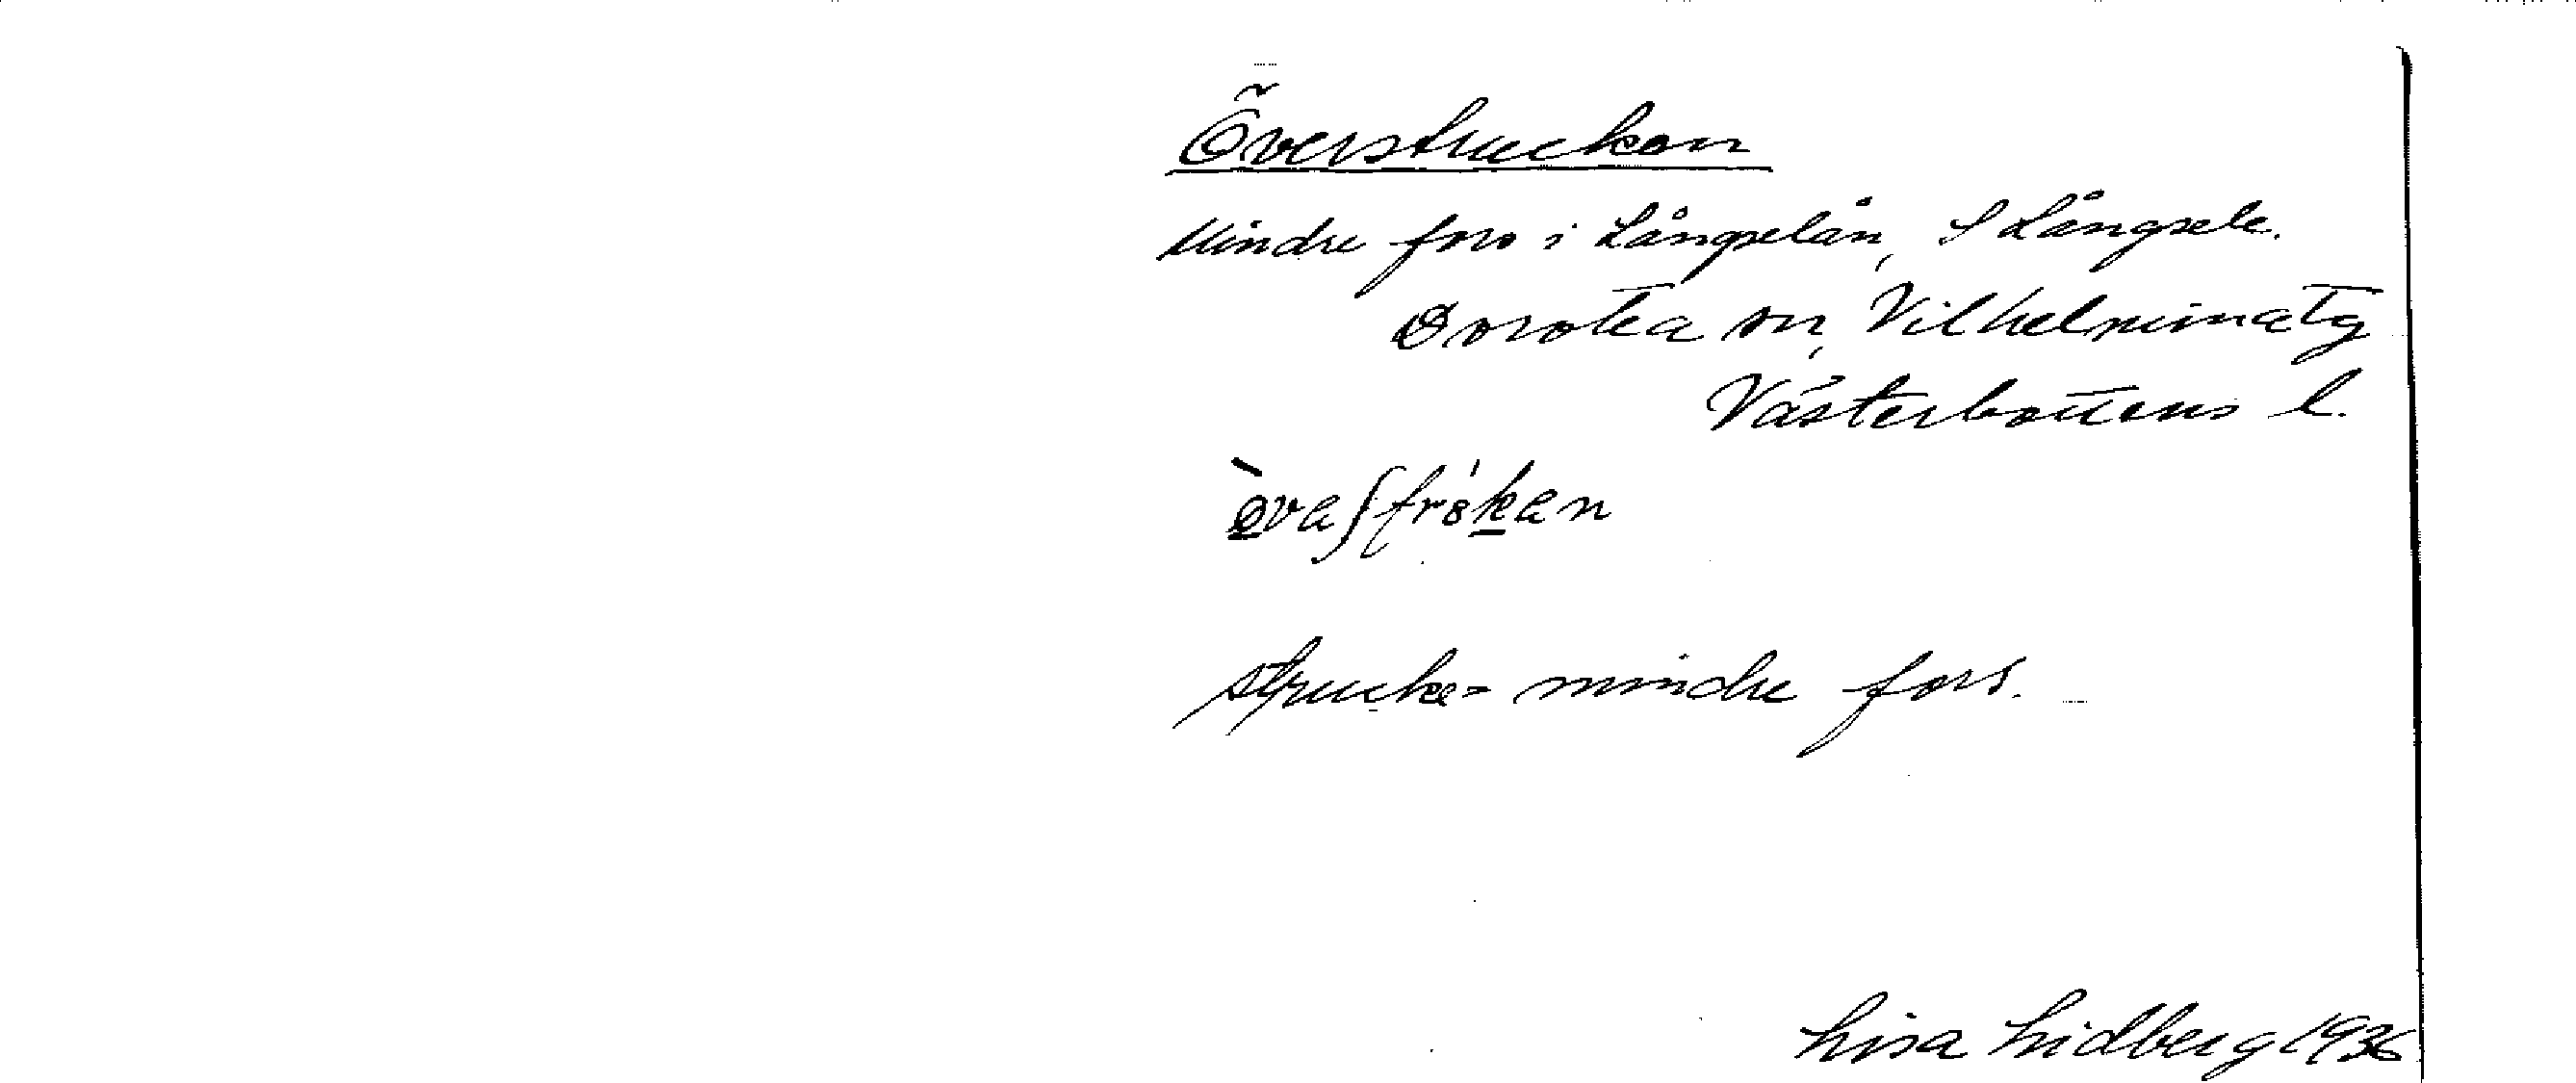 Överstrucken
Mindre fors i Långselån, S Långsele.
Dorotea sn, Vilhelmina tg
Västerbottens l.
strucke = mindre fors.
Lisa Lidberg 1936